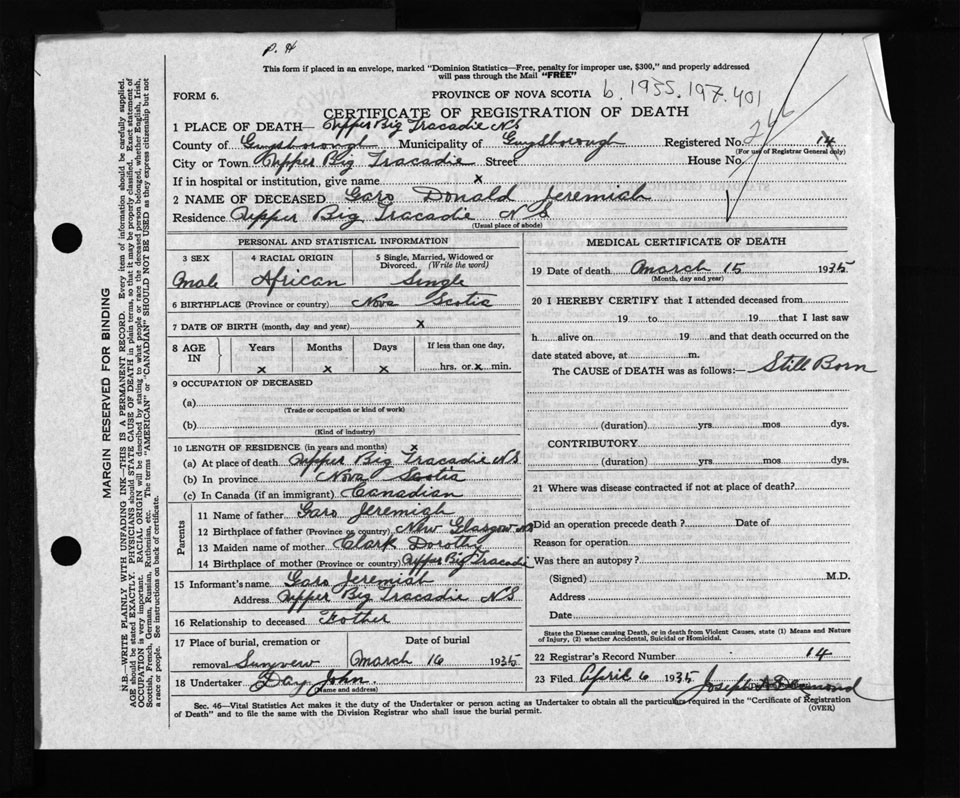 p. 4
This form if placed in an envelope, marked "Dominion Statistics—Free, penalty for improper use, $300," and properly addressed
will pass through the Mail "FREE"
FORM 6.
PROVINCE OF NOVA SCOTIA b. 1935.197.401
CERTIFICATE OF REGISTRATION OF DEATH
1 PLACE OF DEATH— Upper Big Tracadie N S
County of Guysborough Municipality of Guysborough Registered No. 14
(For use of Registrar General only)
City or Town Upper Big Tracadie Street House No.
If in hospital or institution, give name x
2 NAME OF DECEASED Garo Donald Jeremiah
Residence Upper Big Tracadie N S
(Usual place of abode)
PERSONAL AND STATISTICAL INFORMATION
3 SEX Male
4 RACIAL ORIGIN African
5 Single, Married, Widowed or Divorced. (Write the word) Single
6 BIRTHPLACE (Province or country) Nova Scotia
7 DATE OF BIRTH (month, day and year) x
8 AGE IN Years x Months x Days x If less than one day, hrs. or x min.
9 OCCUPATION OF DECEASED
(a)
(Trade or occupation or kind of work)
(b)
(Kind of industry)
10 LENGTH OF RESIDENCE (in years and months) x
(a) At place of death Upper Big Tracadie N S
(b) In province Nova Scotia
(c) In Canada (if an immigrant) Canadian
Parents
11 Name of father Garo Jeremiah
12 Birthplace of father (Province or country) New Glasgow N S
13 Maiden name of mother Clark Dorothy
14 Birthplace of mother (Province or country) Upper Big Tracadie
15 Informant's name Garo Jeremiah
Address Upper Big Tracadie N S
16 Relationship to deceased Father
17 Place of burial, cremation or removal Sunyvew
Date of burial March 16 1935
18 Undertaker Day John
(Name and address)
MEDICAL CERTIFICATE OF DEATH
19 Date of death March 15 1935
(Month, day and year)
20 I HEREBY CERTIFY that I attended deceased from
19 to 19 —that I last saw
h alive on 19 — and that death occurred on the
date stated above, at m.
The CAUSE of DEATH was as follows:— Still Born
(duration) yrs mos dys.
CONTRIBUTORY
(duration) yrs mos dys.
21 Where was disease contracted if not at place of death?
Did an operation precede death? Date of
Reason for operation
Was there an autopsy?
(Signed) M.D.
Address
Date
State the Disease causing Death, or in death from Violent Causes, state (1) Means and Nature
of Injury, (2) whether Accidental, Suicidal or Homicidal.
22 Registrar's Record Number 14
23 Filed April 6 1935 Joseph A Desmond
Sec. 46—Vital Statistics Act makes it the duty of the Undertaker or person acting as Undertaker to obtain all the particulars required in the "Certificate of Registration
of Death" and to file the same with the Division Registrar who shall issue the burial permit. (OVER)
MARGIN RESERVED FOR BINDING
N.B.—WRITE PLAINLY WITH UNFADING INK—THIS IS A PERMANENT RECORD. Every item of information should be carefully supplied.
AGE should be stated EXACTLY. PHYSICIANS should STATE CAUSE OF DEATH in plain terms, so that it may be properly classified. Exact statement of
OCCUPATION is very important. RACIAL ORIGIN will be described by stating to what people or race the deceased person belonged, whether English, Irish,
Scottish, French, German, Russian, Ruthenian, etc. The terms "AMERICAN" or "CANADIAN" SHOULD NOT BE USED as they express citizenship but not
a race or people. See instructions on back of certificate.